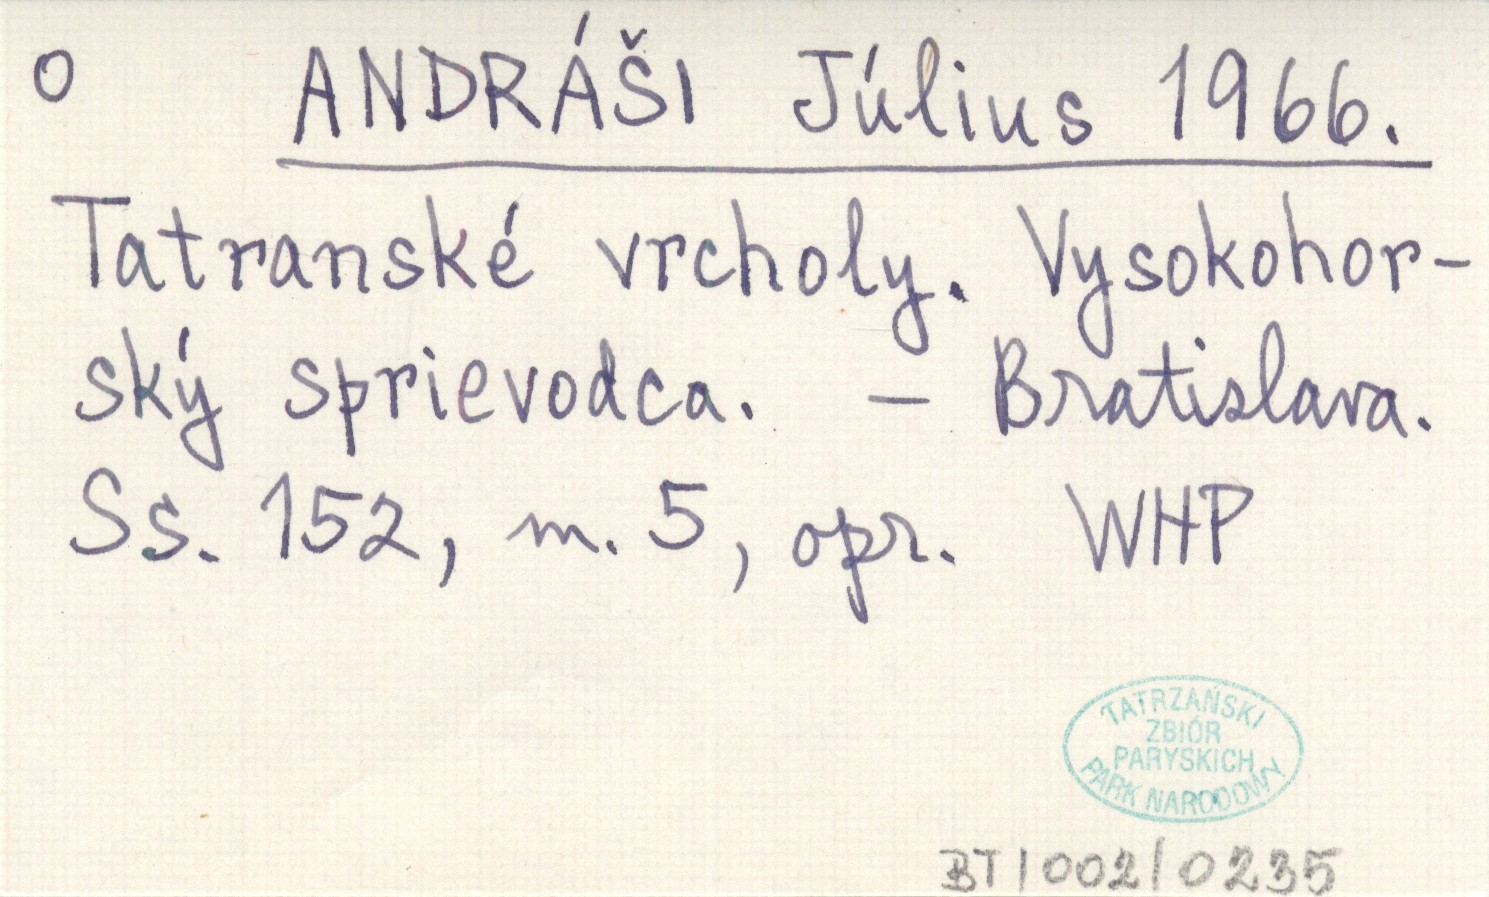 o ANDRÁŠI Július 1966.
Tatranské vrcholy. Vysokohor-
ský sprievodca. – Bratislava.
Ss. 152, m. 5, opr. WHP
TATRZAŃSKI
ZBIÓR
PARYSKICH
PARK NARODOWY
BT/002/0235